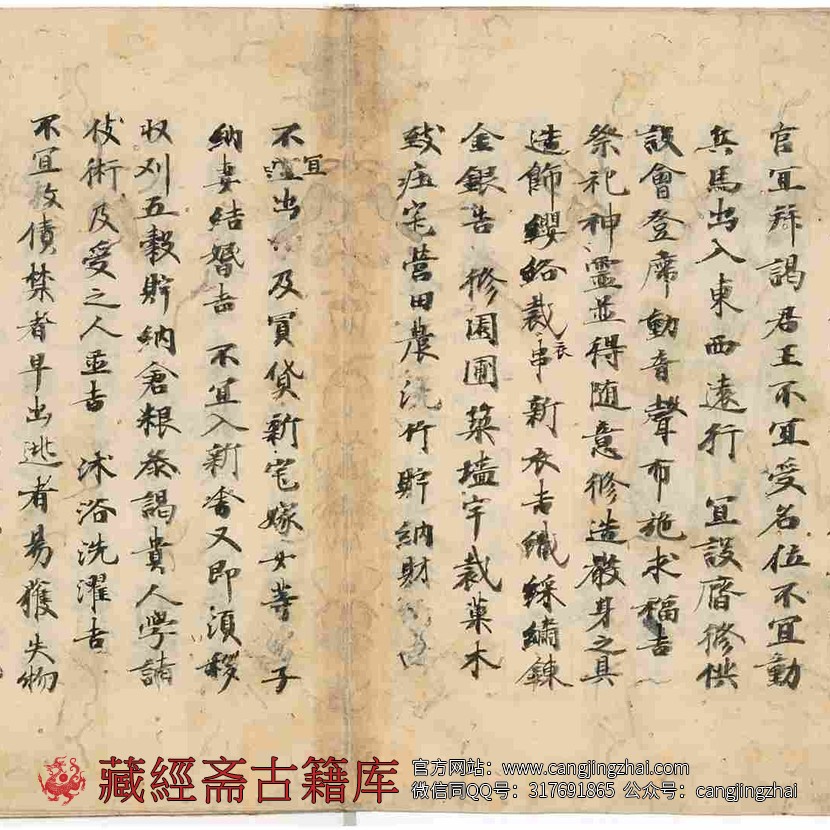 官宜拜謁君王不宜受名位不宜動
兵馬出入東西遠行 宜設齋修供
設會登席動音聲布施求福吉
祭祀神靈並得随意修造嚴身之具
造飾纓絡裁串新衣吉織綵繡錬
金銀吉 修園圃築墻宇裁菓木
宅營田農 竹貯納財
不宜出 及買貸新宅嫁女等 子
納妻結婚吉 不宜入新舍又即須移
収刈五穀貯納倉粮参謁貴人學誦
伎術及受之人並吉 沐浴洗濯吉
不宜放債禁者早出逃者易獲失物
藏經斋古籍库
官方网站：www.cangjingzhai.com
微信同QQ号：317691865 公众号：cangjingzhai